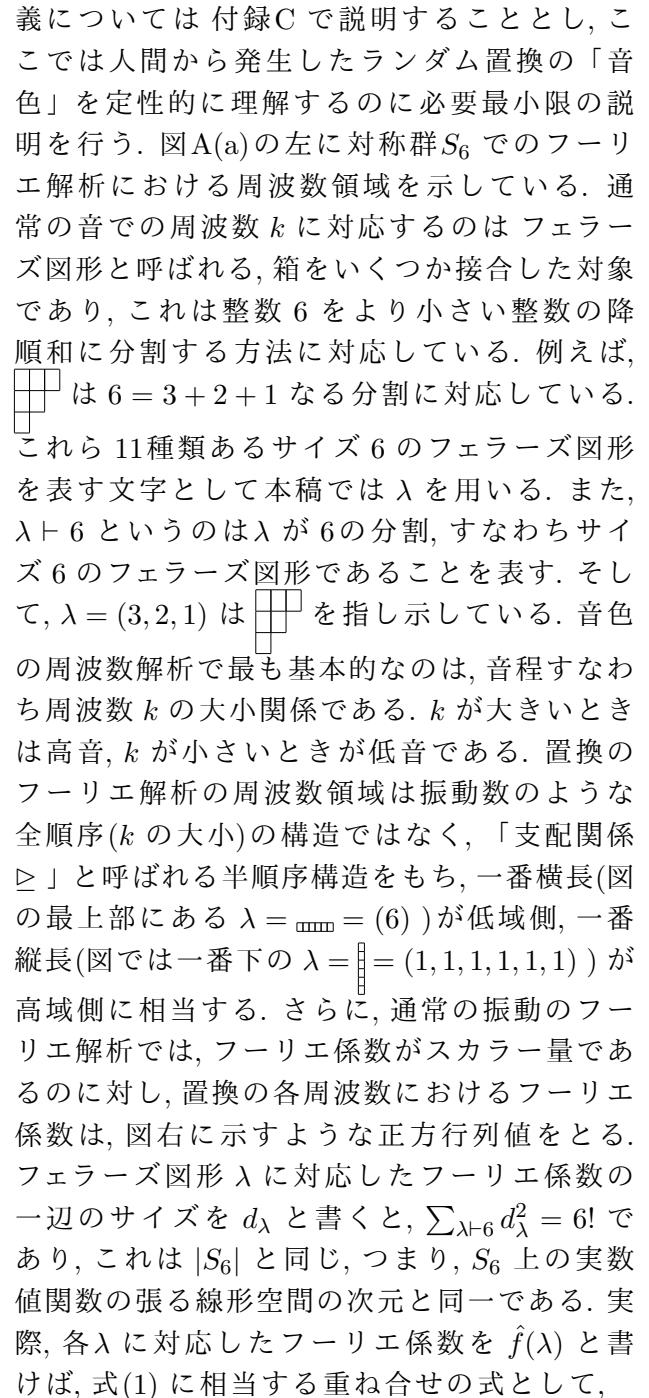 義については 付録C で説明することとし, こ
こでは人間から発生したランダム置換の「音
色」を定性的に理解するのに必要最小限の説
明を行う. 図A(a)の左に対称群S_6 でのフーリ
エ解析における周波数領域を示している. 通
常の音での周波数 k に対応するのは フェラー
ズ図形と呼ばれる, 箱をいくつか接合した対象
であり, これは整数 6 をより小さい整数の降
順和に分割する方法に対応している. 例えば,
は 6 = 3 + 2 + 1 なる分割に対応している.
これら 11種類あるサイズ 6 のフェラーズ図形
を表す文字として本稿では λ を用いる. また,
λ ⊢ 6 というのはλ が 6の分割, すなわちサイ
ズ 6 のフェラーズ図形であることを表す. そし
て, λ = (3, 2, 1) は を指し示している. 音色
の周波数解析で最も基本的なのは, 音程すなわ
ち周波数 k の大小関係である. k が大きいとき
は高音, k が小さいときが低音である. 置換の
フーリエ解析の周波数領域は振動数のような
全順序(k の大小)の構造ではなく, 「支配関係
⊵ 」と呼ばれる半順序構造をもち, 一番横長(図
の最上部にある λ = = (6) )が低域側, 一番
縦長(図では一番下の λ = = (1, 1, 1, 1, 1, 1) ) が
高域側に相当する. さらに, 通常の振動のフー
リエ解析では, フーリエ係数がスカラー量であ
るのに対し, 置換の各周波数におけるフーリエ
係数は, 図右に示すような正方行列値をとる.
フェラーズ図形 λ に対応したフーリエ係数の
一辺のサイズを d_λ と書くと, ∑_{λ⊢6} d_λ^2 = 6! で
あり, これは |S_6| と同じ, つまり, S_6 上の実数
値関数の張る線形空間の次元と同一である. 実
際, 各λ に対応したフーリエ係数を f̂(λ) と書
けば, 式(1) に相当する重ね合せの式として,